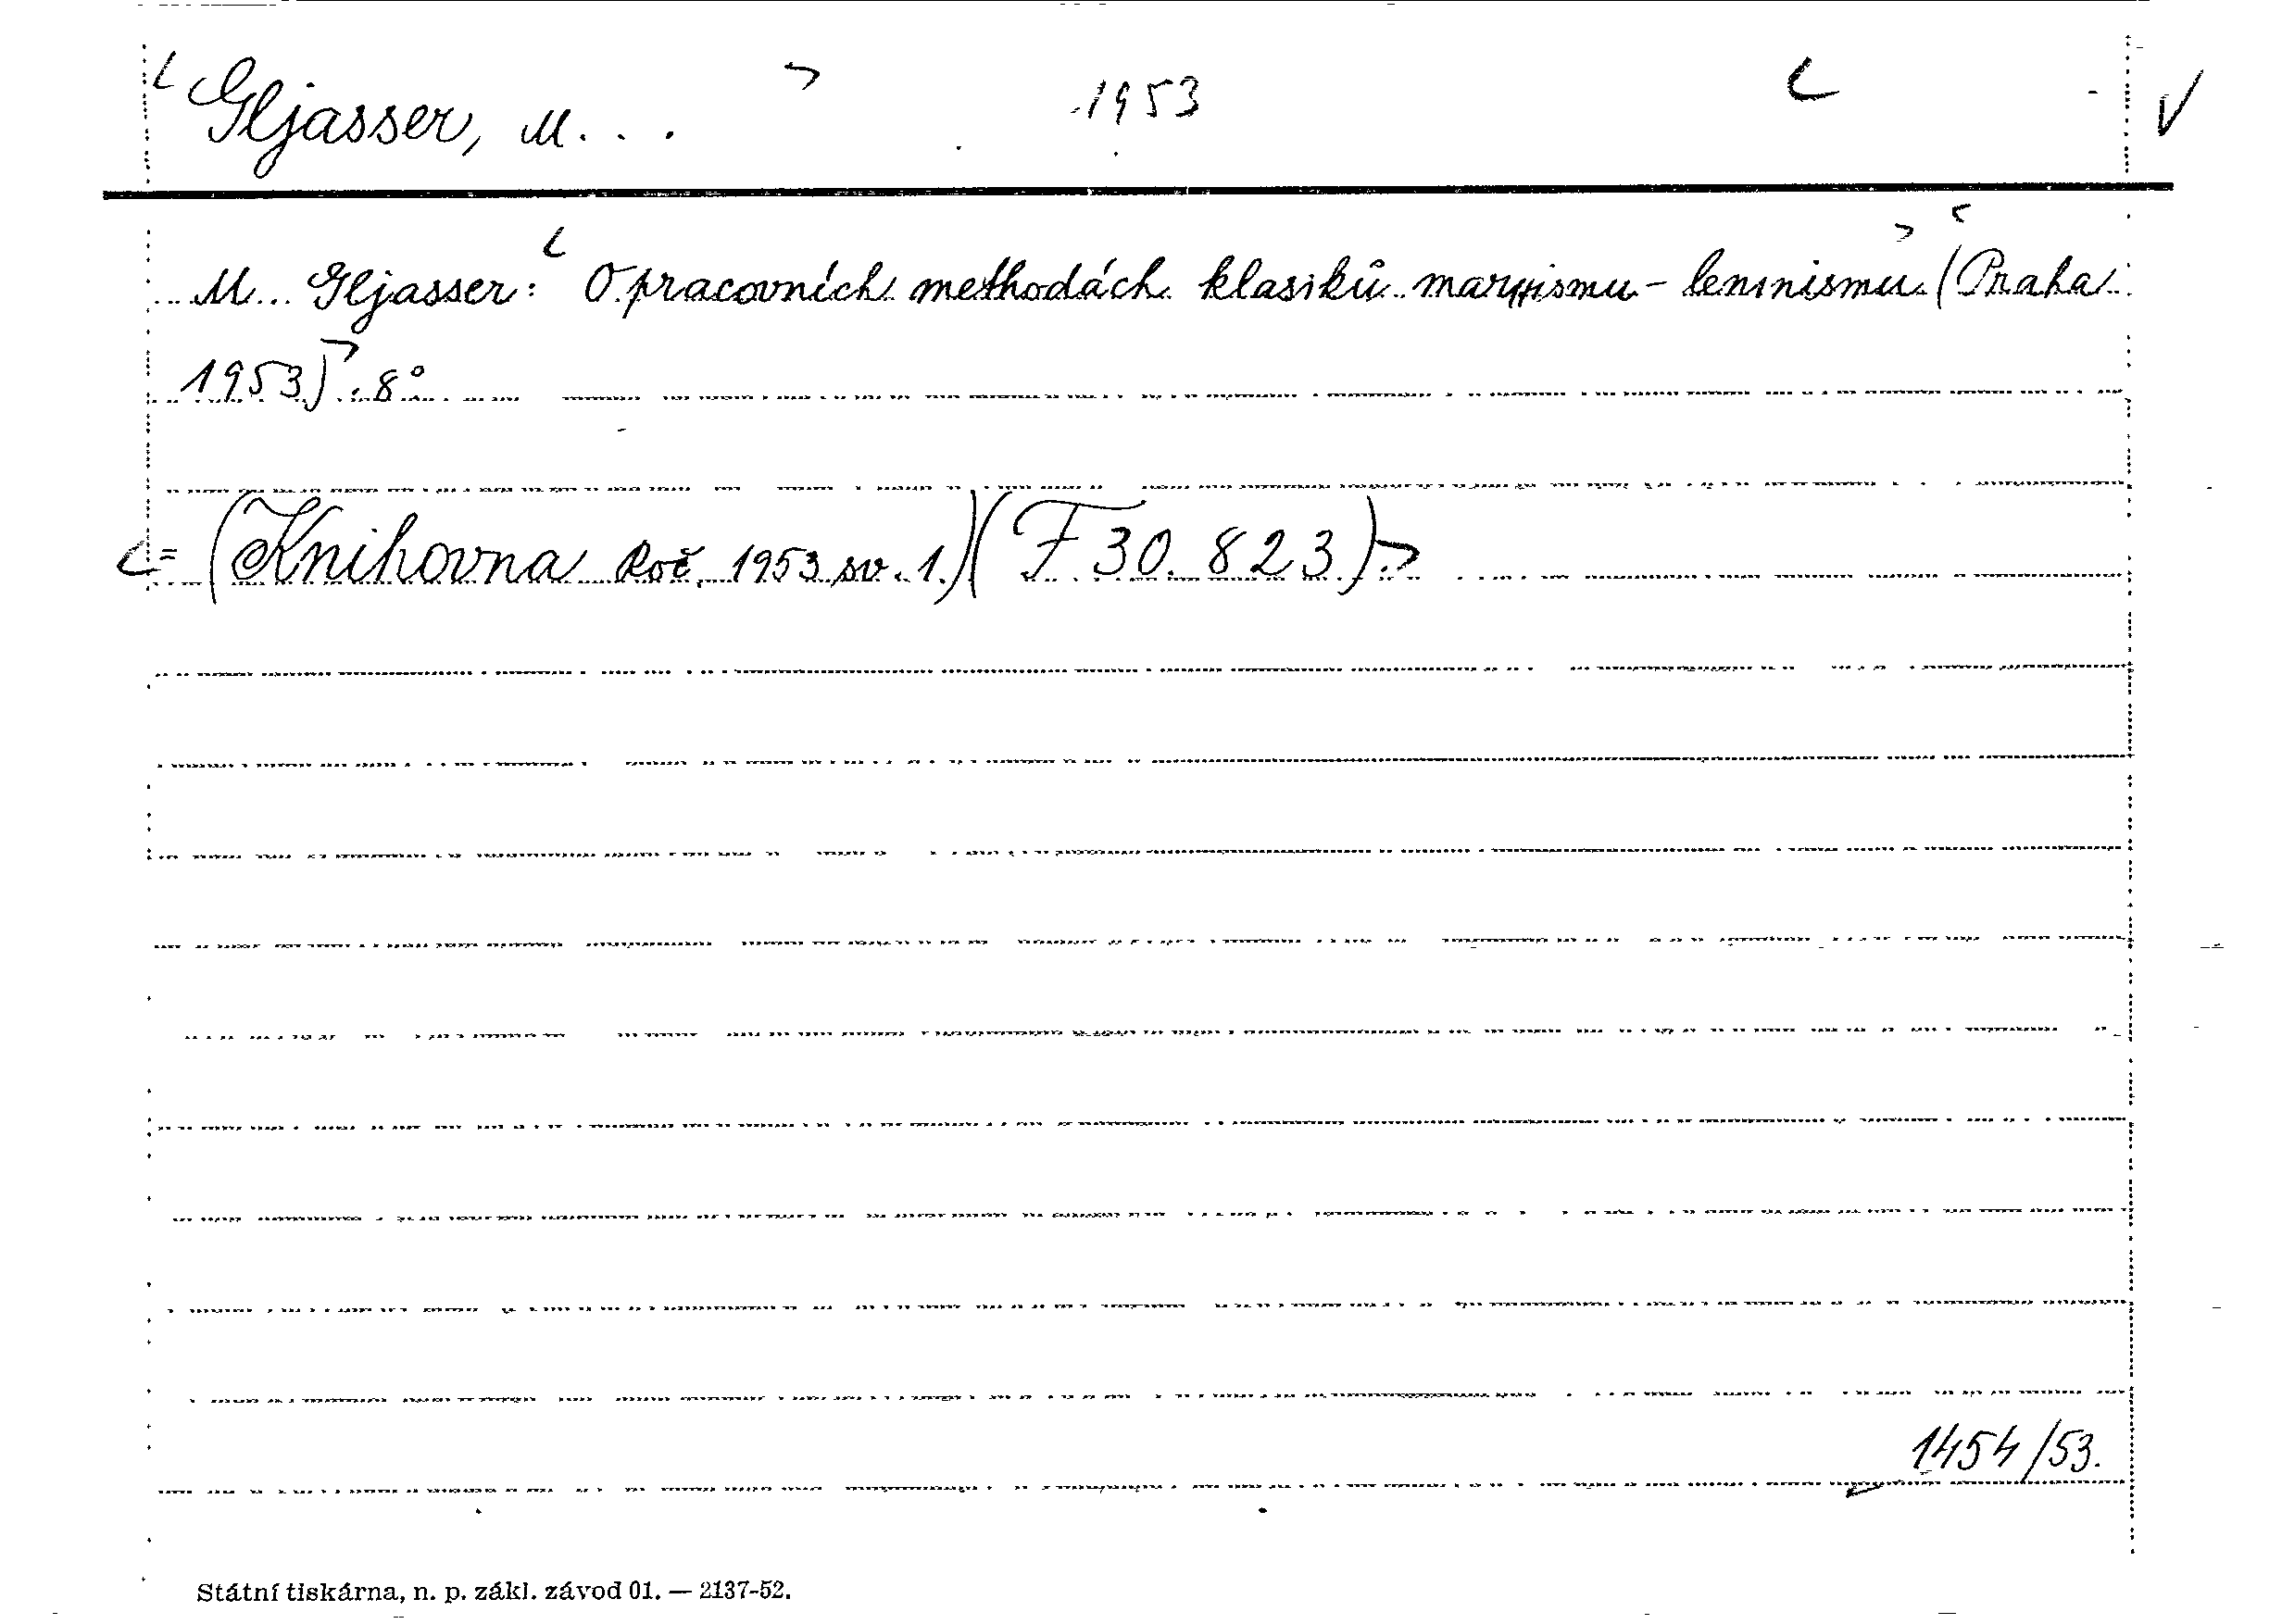 Gljasser, M... 1953
M... Gljasser: O pracovních methodách klasiků marxismu-leninismu (Praha
1953). 8°
= (Knihovna Roč. 1953 sv. 1.) (F 30.823).
1454/53.
Státní tiskárna, n. p. zákl. závod 01. — 2137-52.